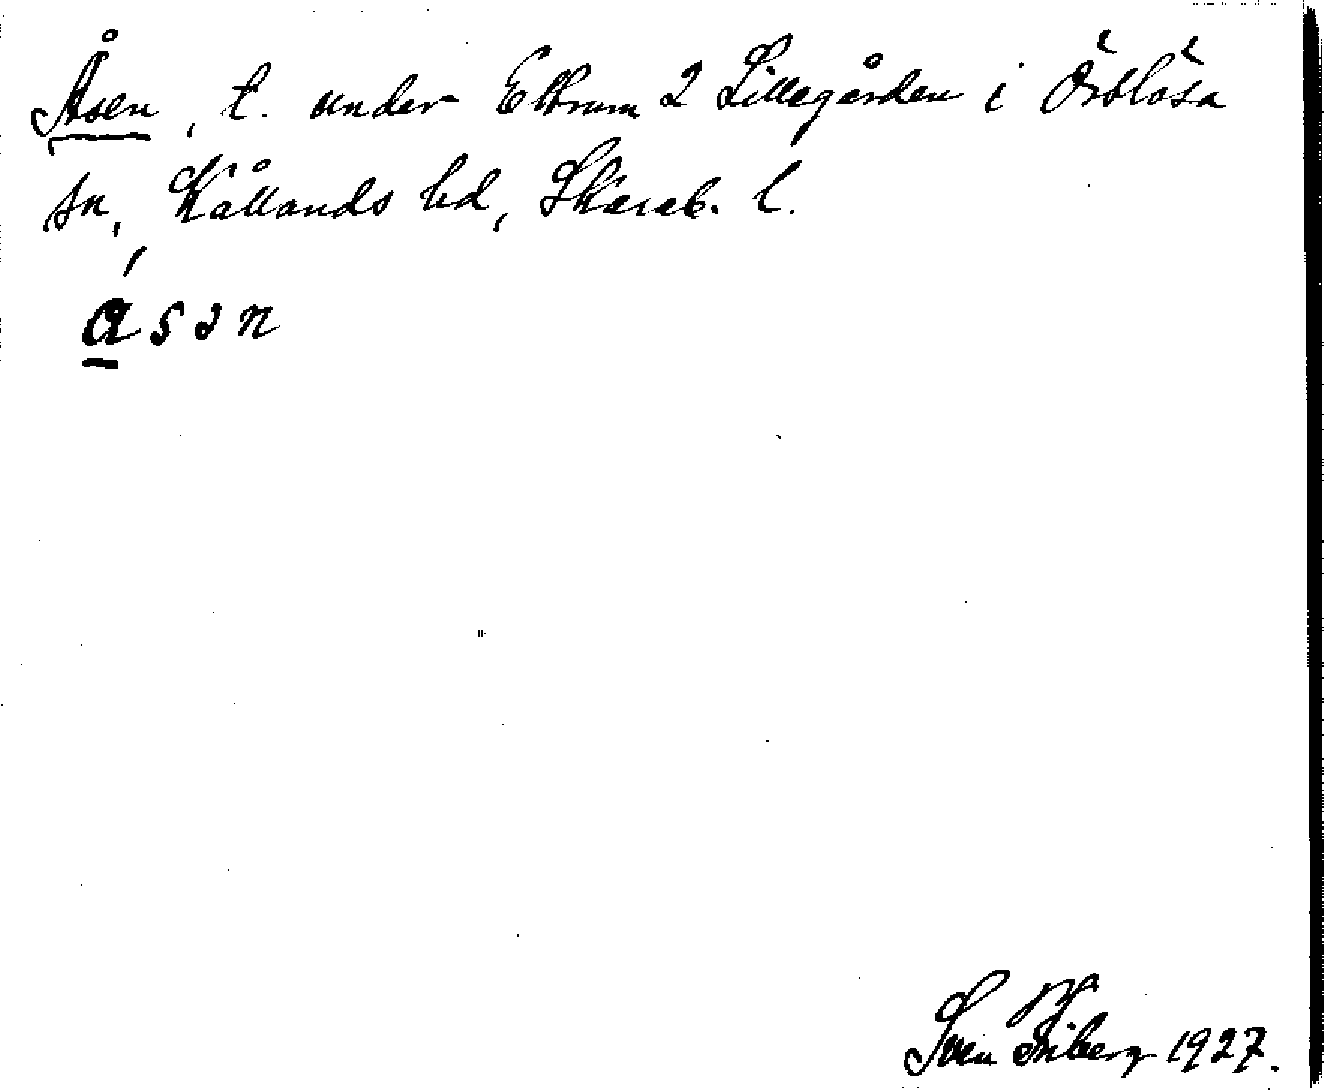 Åsen, t. under Ekbrum 2 Lillegården i Örslösa
sn, Kållands hd, Skarab. l.
ása n
Sven Friberg 1927.